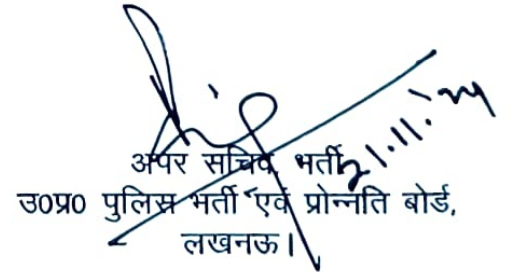 21.11.24
अपर सचिव भर्ती,
उ0प्र0 पुलिस भर्ती एवं प्रोन्नति बोर्ड,
लखनऊ।